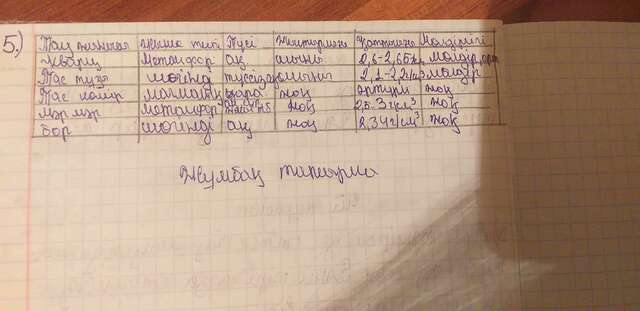 5.) Тау жынысы Жыныс типі Түсі Жылтырлығы Қаттылығы Мөлдірлігі
Кварц Метамфор ақ шыны 2,6-2,65 мөлдір
Тас тұзы шөгінді түссіз шыны 2,1-2,2 г/см³ мөлдір
Тас көмір қара жоқ әртүрлі жоқ
Мәрмәр метамфор ақ жоқ 2,5-3 г/см³ жоқ
Бор шөгінді ақ жоқ 2,34 г/см³ жоқ
Жұмбақ